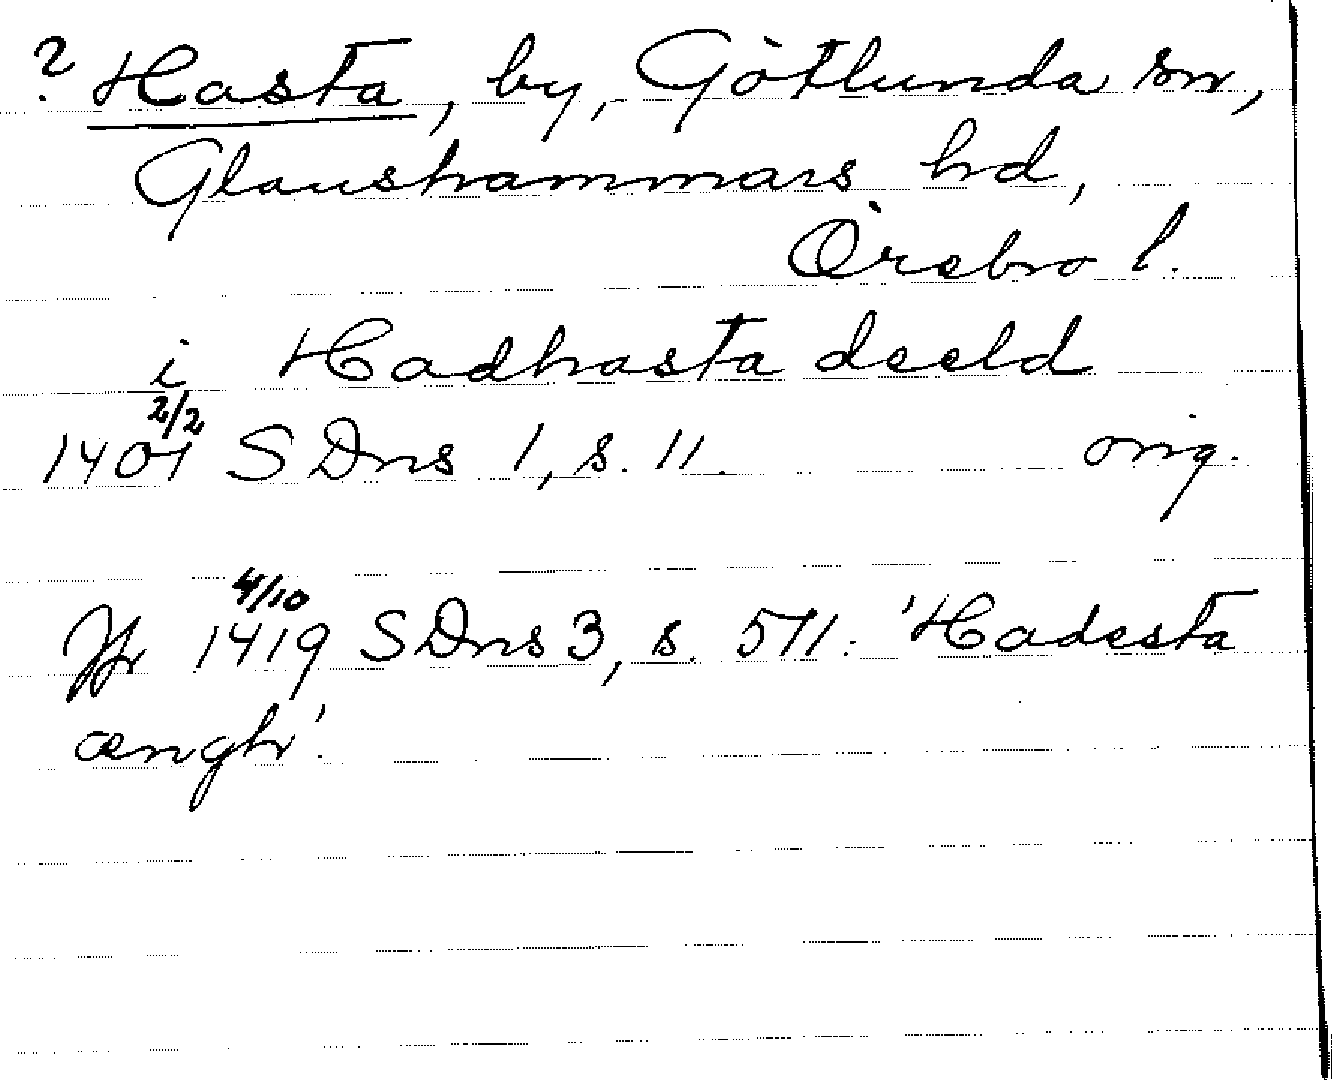 ? Hasta, by, Götlunda sn,
Glanshammars hd,
Örebro l.
i Hadhasta deeld
2/2
1401 SDns 1, s. 11. orig.
4/10
Jfr 1419 SDns 3, s. 511: 'Hadesta
ængh'.